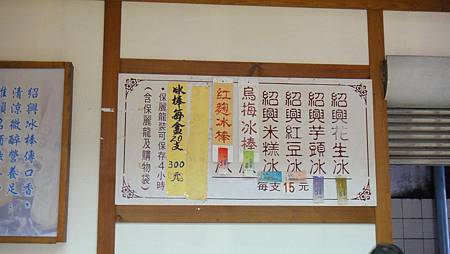 紹興花生冰
紹興芋頭冰
紹興紅豆冰
紹興米糕冰
烏梅冰棒
紅麴冰棒
每支15元
冰棒每盒20支
300元
・保麗龍裝可保存4小時
(含保麗龍及購物袋)
紹興冰棒傳口香，
清涼微醉營養足，